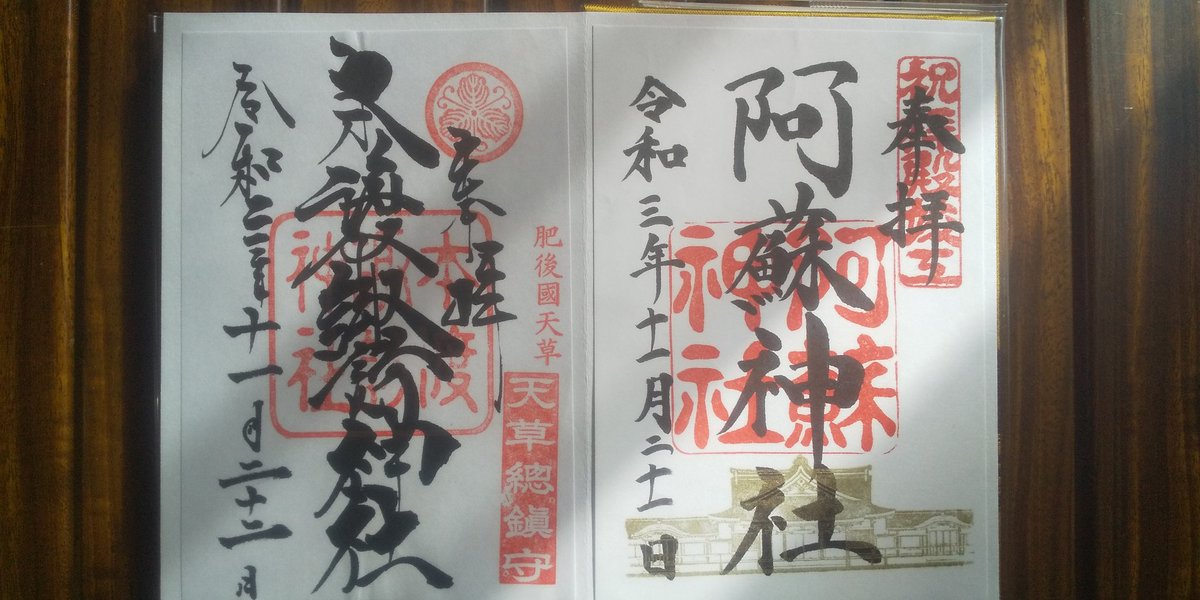 奉拝
祝拝殿竣工
阿蘇神社
阿蘇神社
令和三年十一月二十一日
奉拝
肥後國天草
天草總鎮守
本渡諏訪神社
本渡諏訪神社
令和三年十一月二十二日